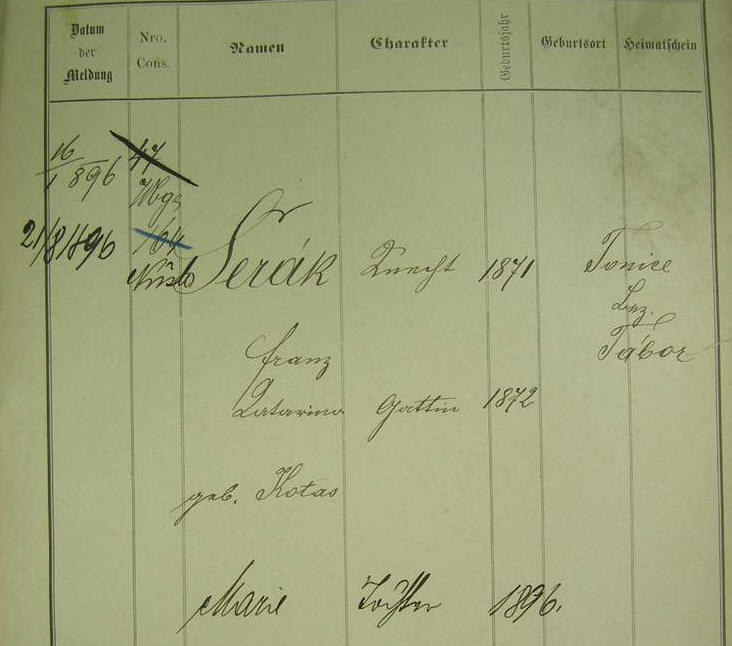 Datum
der
Meldung
Nro.
Cons.
Namen
Charakter
Geburtsjahr
Geburtsort
Heimatschein
16/1 896
47
21/8 1896
164
Nusle
Šerák
Knecht
1871
Tonice
Bez.
Tábor
Franz
Katarina
Gattin
1872
geb. Kotas
Marie
Tochter
1896.